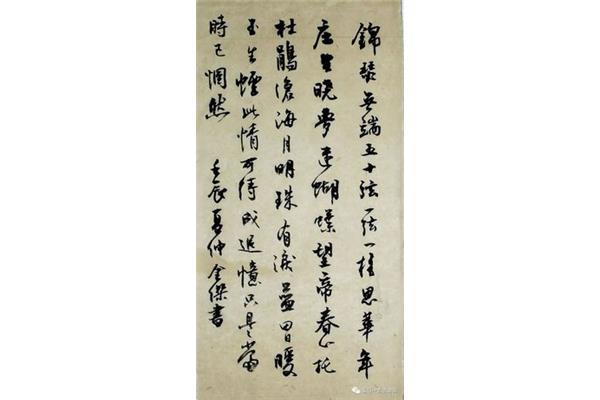 錦瑟无端五十弦一弦一柱思華年
庄生晓夢迷蝴蝶望帝春心托
杜鵑滄海月明珠有淚藍田日暖
玉生煙此情可待成追憶只是當
時已惘然 壬辰夏仲金傑書